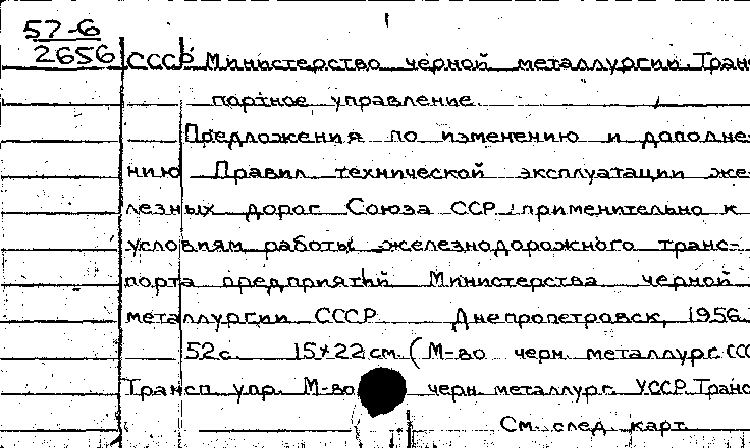 57-6
2656
СССР Министерство черной металлургии. Транс
портное управление.
Предложения по изменению и дополне-
нию Правил технической эксплуатации же-
лезных дорог Союза ССР применительно к
условиям работы железнодорожного транс-
порта предприятий Министерства черной
металлургии СССР Днепропетровск, 1956.
52с. 15×22см. (М-во черн. металлург. ССС
Трансп. упр. М-во черн. металлург. УССР. Транс
См. след. карт.